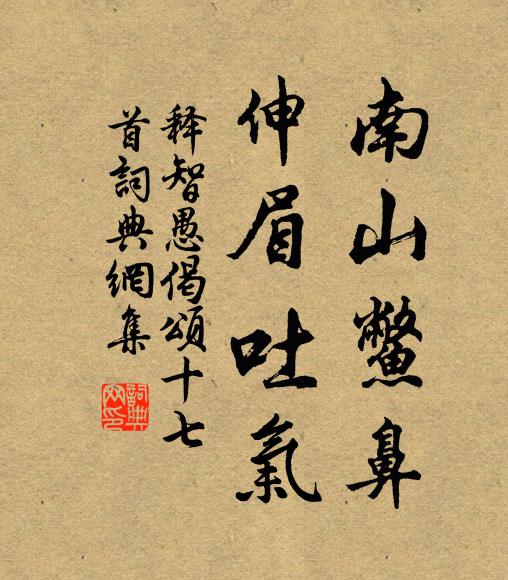 南山鱉鼻
伸眉吐氣
釋智愚偈頌十七
首詞典網集
詞典
网印